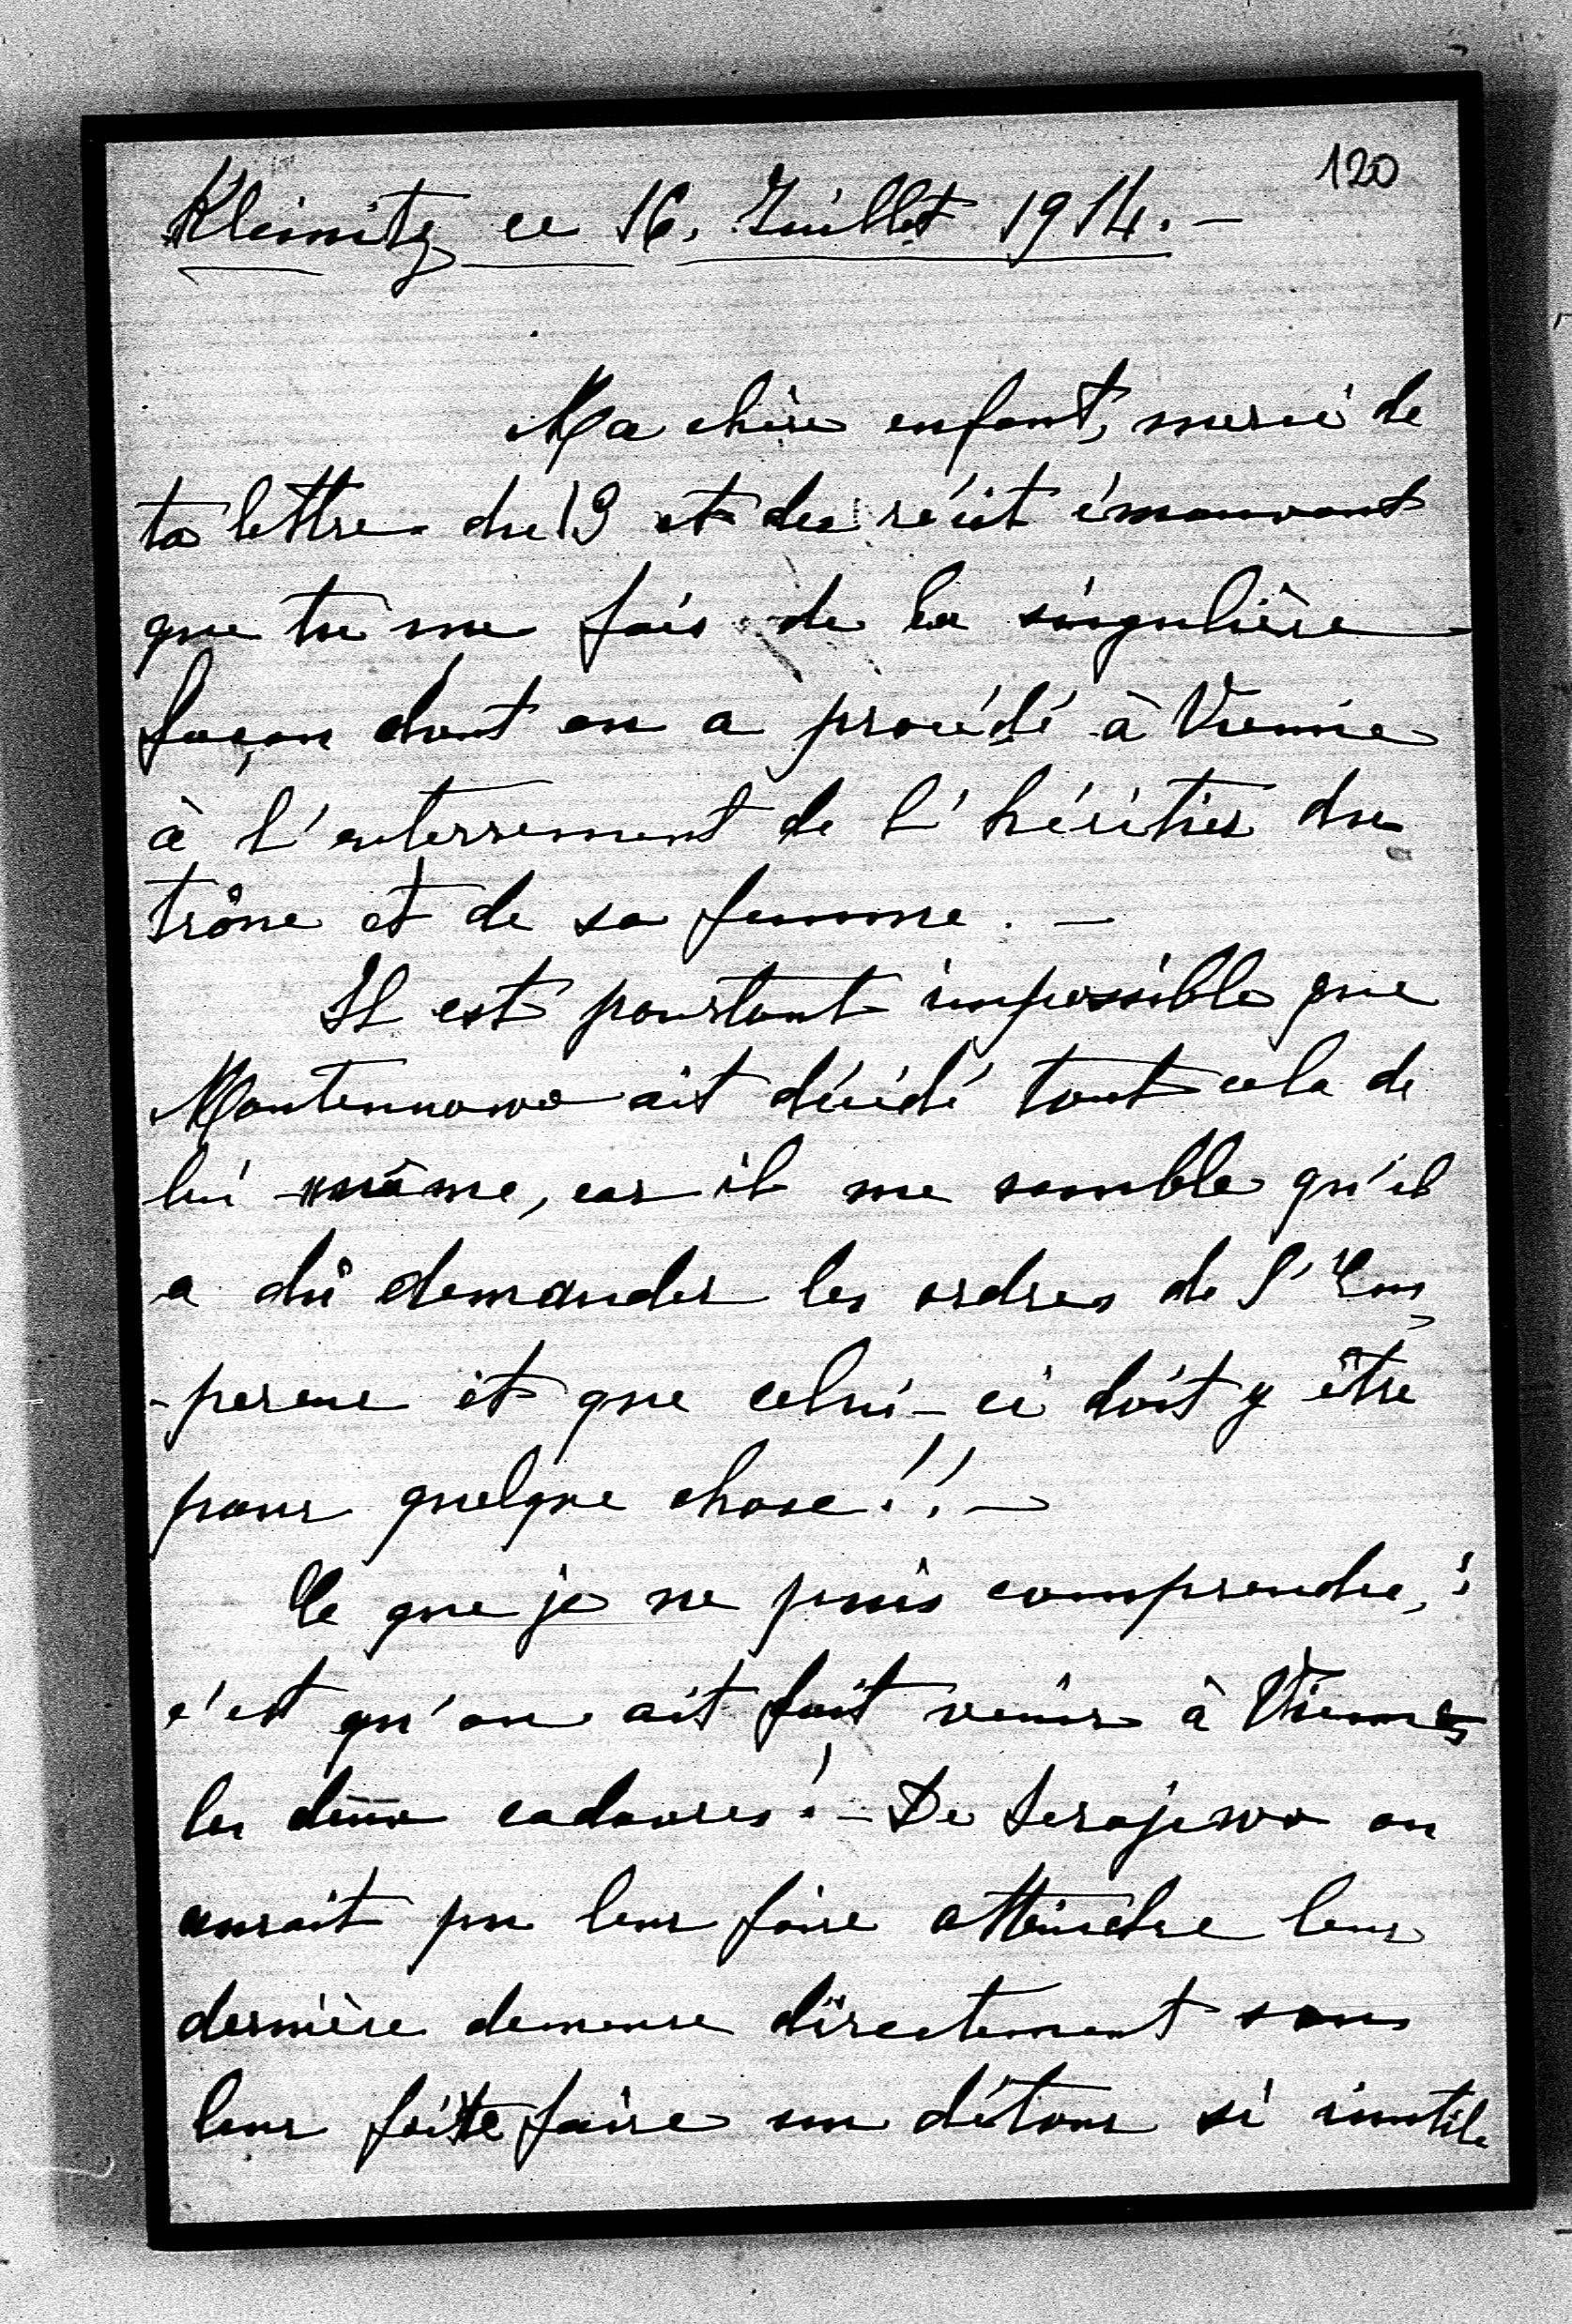 120
Kleinitz ce 16. Juillet 1914. —
Ma chère enfant, merci de
ta lettre du 13 et du récit émouvant
que tu me fais de la singulière
façon dont on a procédé à Vienne
à l'enterrement de l'héritier du
trône et de sa femme. —
Il est pourtant impossible que
Montenuovo ait décidé tout cela de
lui même, car il me semble qu'il
a dû demander les ordres de l'Em
-pereur et que celui-ci doit y être
pour quelque chose!! —
Ce que je ne puis comprendre,
c'est qu'on ait fait venir à Vienne
les deux cadavres! — De Serajewo on
aurait pu leur faire atteindre leur
dernière demeure directement sans
leur faire un détour si inutile